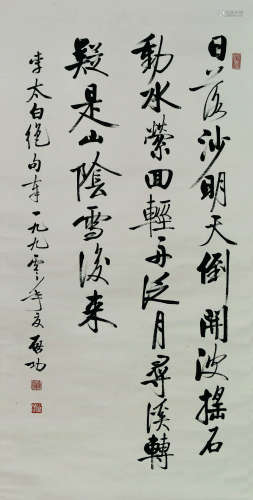 日落沙明天倒開波搖石
動水縈回輕舟泛月尋溪轉
疑是山陰雪後来
李太白絕句 一九九零年夏 啟功